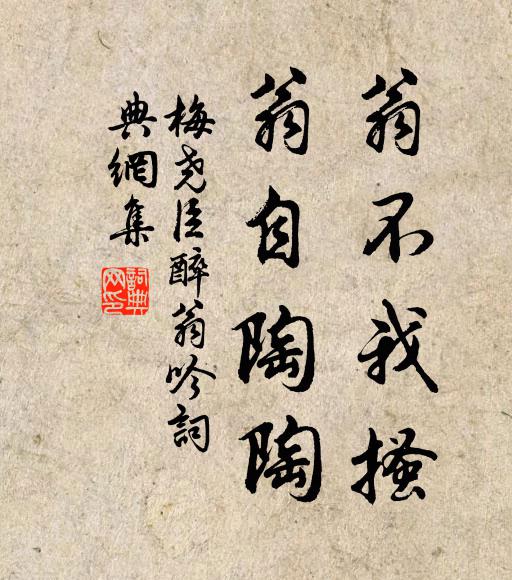 翁不我搔
翁自陶陶
梅尧臣醉翁吟詞
典網集
詞典
网印